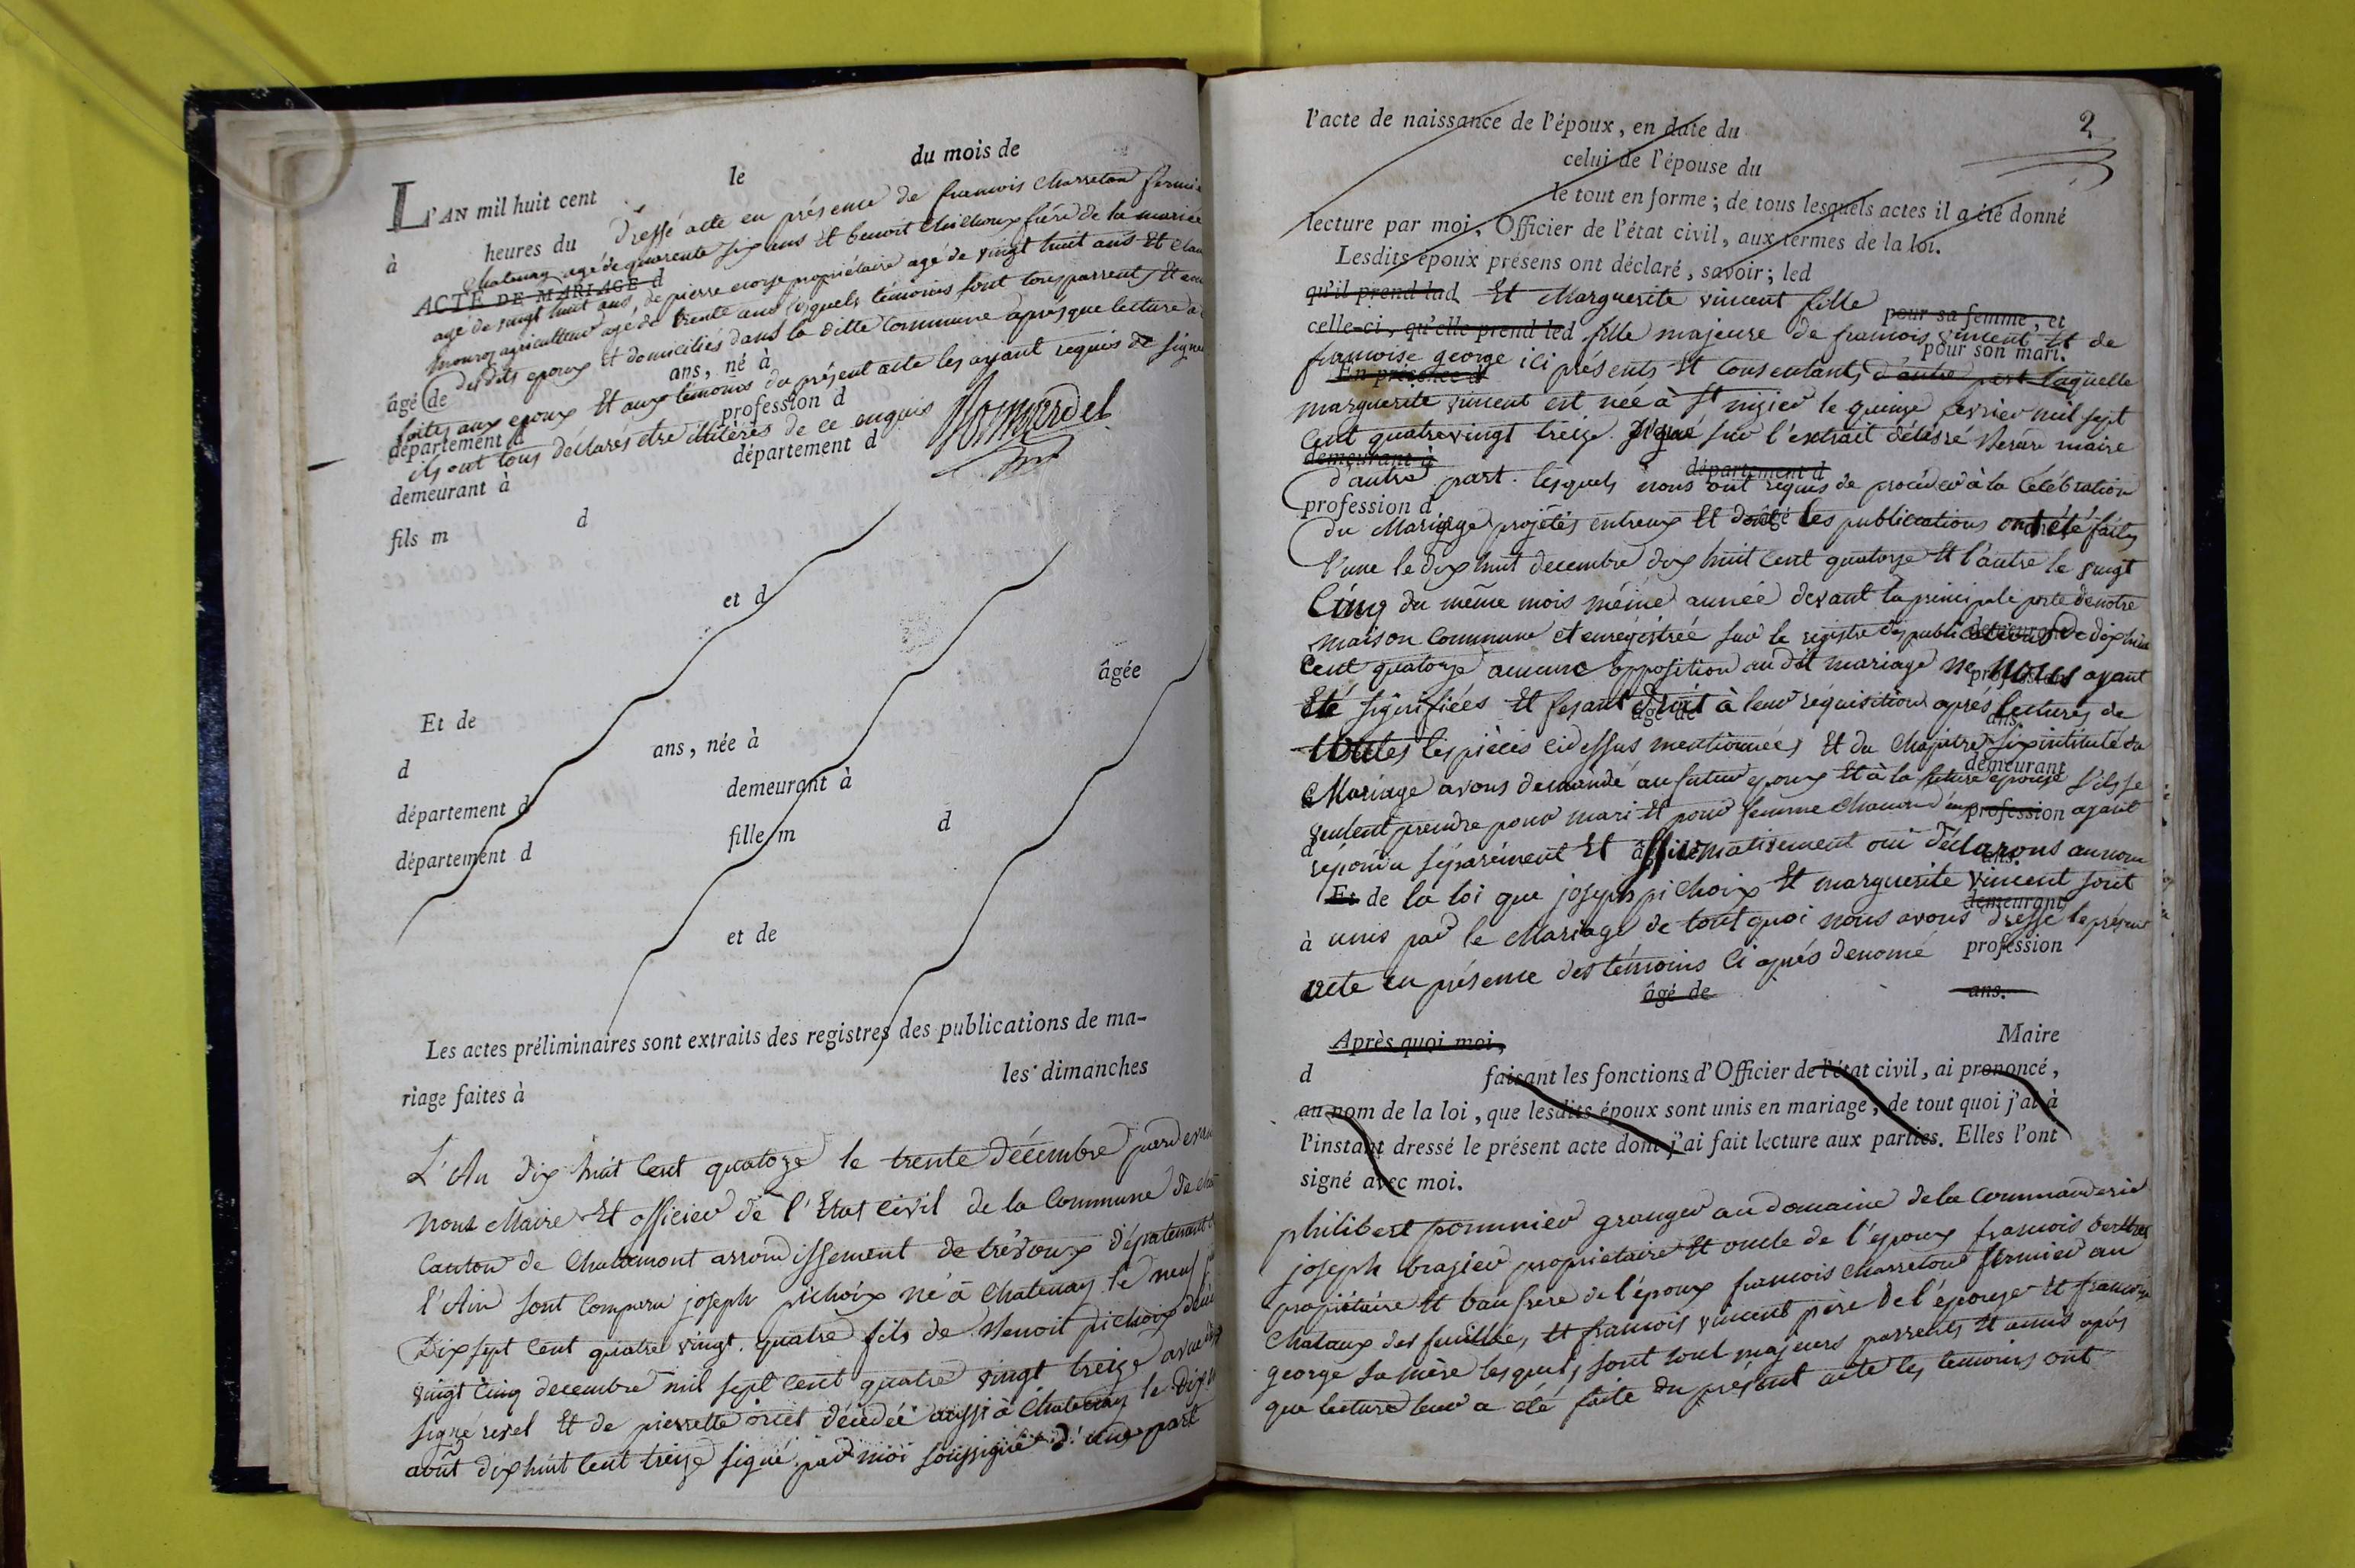 L'AN mil huit cent le du mois de
à heures du Dressé acte en présence de francois Charreton fermie
Chatenay agé de quarente six ans Et benoit frère de la mariée
ACTE DE MARIAGE d
agé de vingt huit ans, de pierre propriétaire agé de vingt huit ans Et
agriculteur agé de trente ans lesquels témoins sont tous parrents Et
desdits epoux Et domiciliés dans la ditte Commune apres que lecture a
âgé de ans, né à
faite aux epoux Et aux temoins du présent acte les ayant requis de signer
département d profession d
ils ont tous déclarés etre illitèrés de ce enquis
département d
demeurant à
fils m d
et d
âgée
Et de
ans, née à
d demeurant à
département d
fille m d
département d
et de
Les actes préliminaires sont extraits des registres des publications de ma-
riage faites à les dimanches
L'An dix huit Cent quatorze le trente décembre pardevant
nous Maire Et officier de l'Etat Civil de la Commune de
Canton de Chalamont arrondissement de trévoux département
l'Ain sont Comparu joseph pichoix né à Chatenay le neuf
Dix sept Cent quatre vingt quatre fils de Benoit pichoix
vingt Cinq decembre mil sept Cent quatre vingt treize
signé revel Et de pierrette décédée aussi à Chatenay le
août dix huit Cent treize signé par moi soussigné d'une part
2
l'acte de naissance de l'époux, en date du
celui de l'épouse du
le tout en forme; de tous lesquels actes il a été donné
lecture par moi, Officier de l'état civil, aux termes de la loi.
Lesdits époux présens ont déclaré, savoir; led
qu'il prend lad Et Marguerite vincent fille
pour sa femme, et
celle-ci, qu'elle prend led fille majeure de francois vincent Et de
pour son mari.
francoise george ici présents Et Consentants d'autre part laquelle
En présence d
marguerite vincent est née à St nizier le quinze fevrier mil sept
Cent quatrevingt treize. Signé sur l'extrait délivré maire
demeurant à
département d
d'autre part. lesquels nous ont requis de procéder à la Célébration
profession d
du Mariage projétés entreux Et dont les publications ont été faites
âgé
l'une le dix huit decembre dix huit Cent quatorze Et l'autre le vingt
Cinq du même mois même année devant la principale porte de notre
maison Commune et enregistrée sur le registre des publications de dix huit
demeurant
Cent quatorze aucune opposition au dit mariage ne nous ayant
profession
Eté signifiées Et fesant droit à leur réquisition après lectures de
âgé de ans.
toutes les pièces cidessus mentionnées Et du Chapitre six intitulé du
demeurant
Mariage avons demandé au futur epoux Et à la future epouse s'ils se
veulent prendre pour mari Et pour femme Chacun d'eux ayant
profession
d
répondu séparément Et affirmativement oui déclarons au nom
ans.
Et de la loi que joseph pichoix Et marguerite vincent sont
demeurant
à unis par le Mariage de tout quoi nous avons dressé le présent
profession
acte en présence des témoins Ci après denomé
âgé de ans.
Après quoi moi, Maire
d faisant les fonctions d'Officier de l'état civil, ai prononcé,
au nom de la loi, que lesdits époux sont unis en mariage; de tout quoi j'ai à
l'instant dressé le présent acte dont j'ai fait lecture aux parties. Elles l'ont
signé avec moi.
philibert pommier granger au domaine de la Commanderie
joseph brazier propriétaire Et oncle de l'epoux francois
propriétaire Et bau frere de l'époux francois Charreton fermier au
Chataux des feuillée, Et francois vincent père de l'épouze Et francoise
george sa mère lesquels sont tout majeurs parrents Et amis après
que lecture leur a été faite du présent acte les temoins ont